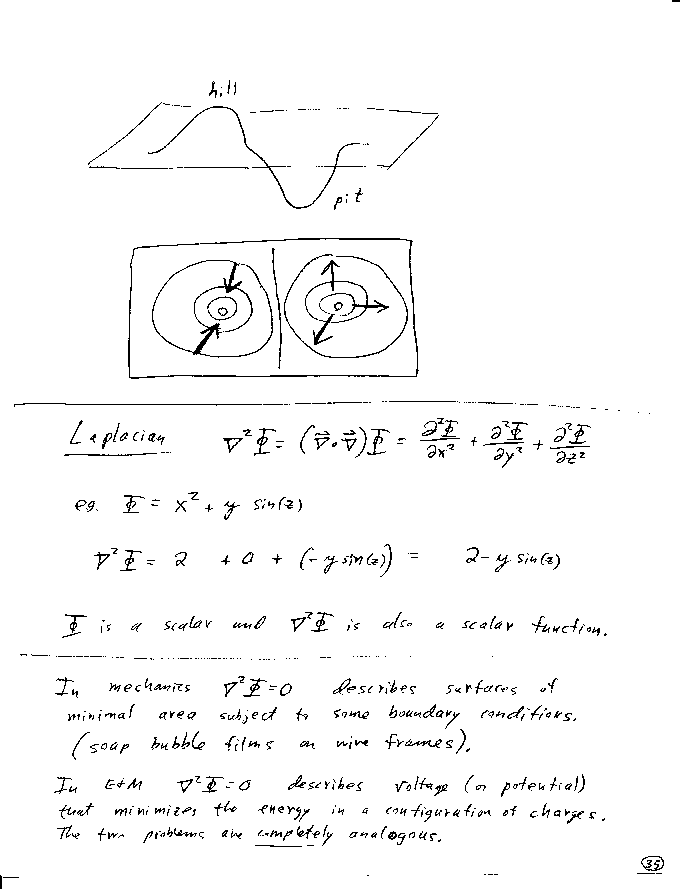 hill
pit
Laplacian ∇²Φ = (∇⃗•∇⃗)Φ = ∂²Φ/∂x² + ∂²Φ/∂y² + ∂²Φ/∂z²
eg. Φ = x² + y sin(z)
∇²Φ = 2 + 0 + (-y sin(z)) = 2-y sin(z)
Φ is a scalar and ∇²Φ is also a scalar function.
In mechanics ∇²Φ=0 describes surfaces of
minimal area subject to some boundary conditions.
(soap bubble films on wire frames).
In E+M ∇²Φ=0 describes voltage (or potential)
that minimizes the energy in a configuration of charges.
The two problems are completely analogous.
35